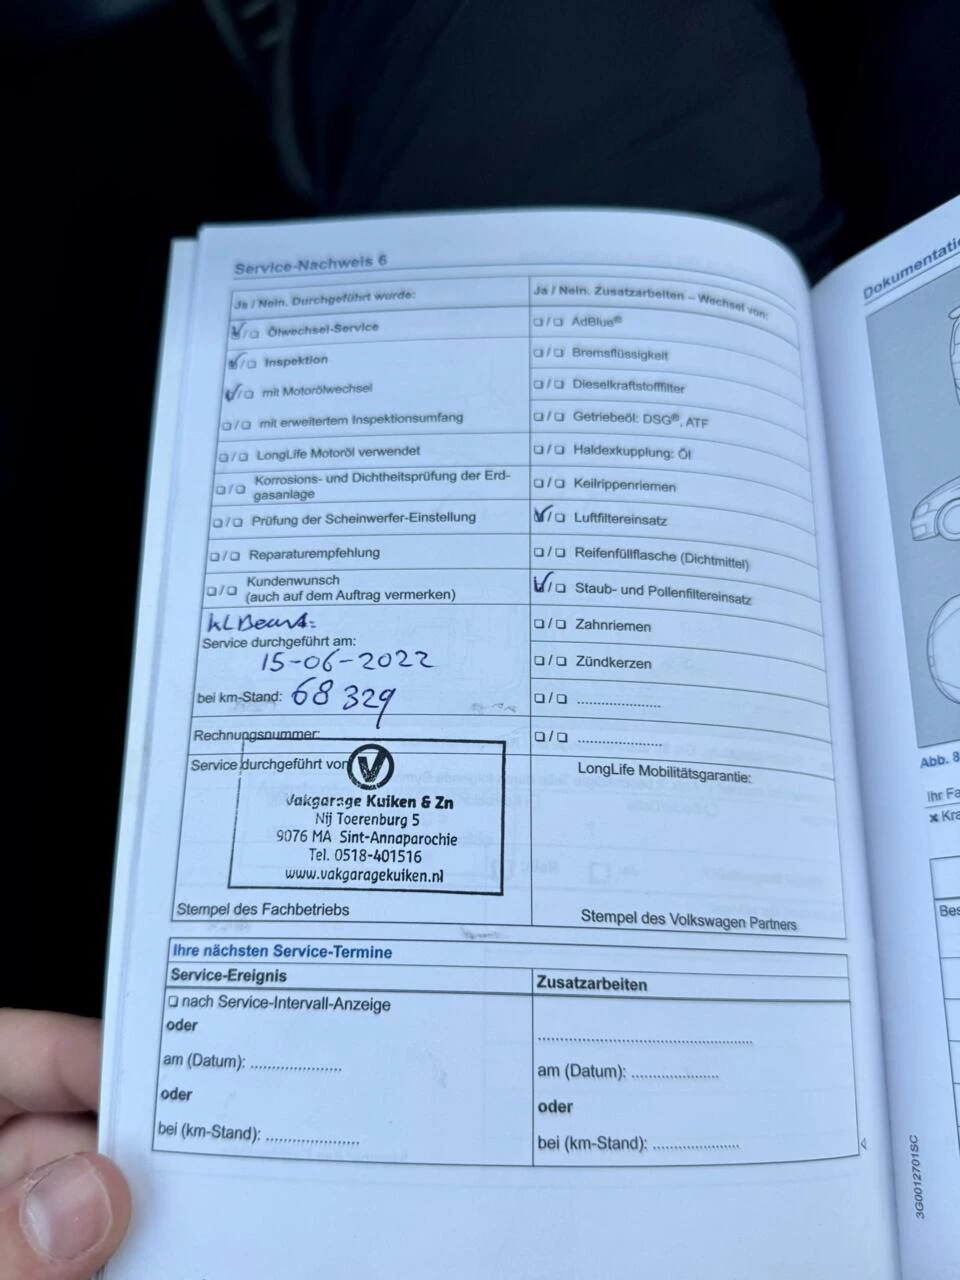 Service-Nachweis 6
Ja / Nein. Durchgeführt wurde:
❏/❏ Ölwechsel-Service
❏/❏ Inspektion
❏/❏ mit Motorölwechsel
❏/❏ mit erweitertem Inspektionsumfang
❏/❏ LongLife Motoröl verwendet
❏/❏ Korrosions- und Dichtheitsprüfung der Erd-
gasanlage
❏/❏ Prüfung der Scheinwerfer-Einstellung
❏/❏ Reparaturempfehlung
❏/❏ Kundenwunsch
(auch auf dem Auftrag vermerken)
Service durchgeführt am:
15-06-2022
bei km-Stand: 68 329
Rechnungsnummer:
Service durchgeführt von
V
Vakgarage Kuiken & Zn
Nij Toerenburg 5
9076 MA Sint-Annaparochie
Tel. 0518-401516
www.vakgaragekuiken.nl
Stempel des Fachbetriebs
Ja / Nein. Zusatzarbeiten – Wechsel von:
❏/❏ AdBlue®
❏/❏ Bremsflüssigkeit
❏/❏ Dieselkraftstofffilter
❏/❏ Getriebeöl: DSG®, ATF
❏/❏ Haldexkupplung: Öl
❏/❏ Keilrippenriemen
❏/❏ Luftfiltereinsatz
❏/❏ Reifenfüllflasche (Dichtmittel)
❏/❏ Staub- und Pollenfiltereinsatz
❏/❏ Zahnriemen
❏/❏ Zündkerzen
❏/❏ .....................
❏/❏ .....................
LongLife Mobilitätsgarantie:
Stempel des Volkswagen Partners
Ihre nächsten Service-Termine
Service-Ereignis
❏ nach Service-Intervall-Anzeige
oder
am (Datum): .....................
oder
bei (km-Stand): .....................
Zusatzarbeiten
................................................
am (Datum): .....................
oder
bei (km-Stand): .....................
3G0012701SC
Abb. 8
Ihr Fa
Kra
Bes